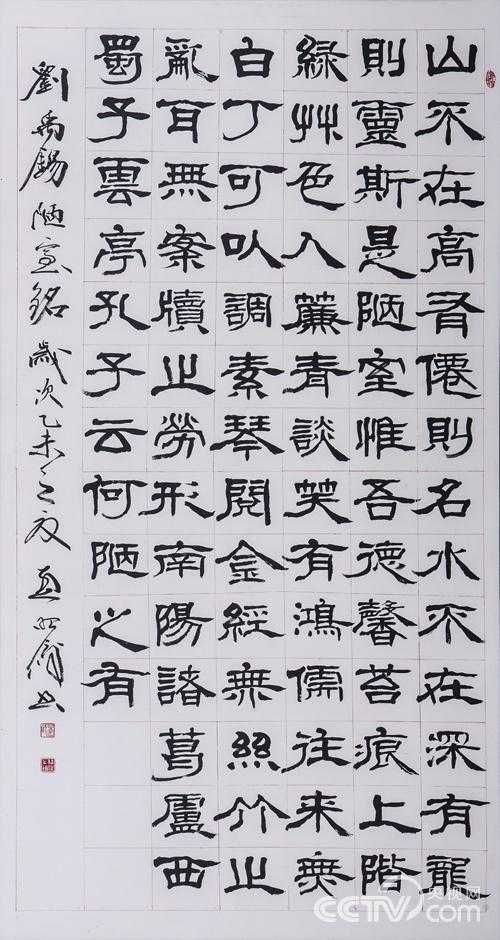 山不在高有僊則名水不在深有龍
則靈斯是陋室惟吾德馨苔痕上階
綠艸色入簾青談笑有鴻儒往來無
白丁可以調素琴閱金經無絲竹之
亂耳無案牘之勞形南陽諸葛廬西
蜀子雲亭孔子云何陋之有
劉禹錫陋室銘歲次乙未之夏書
央视网
CCTV.com